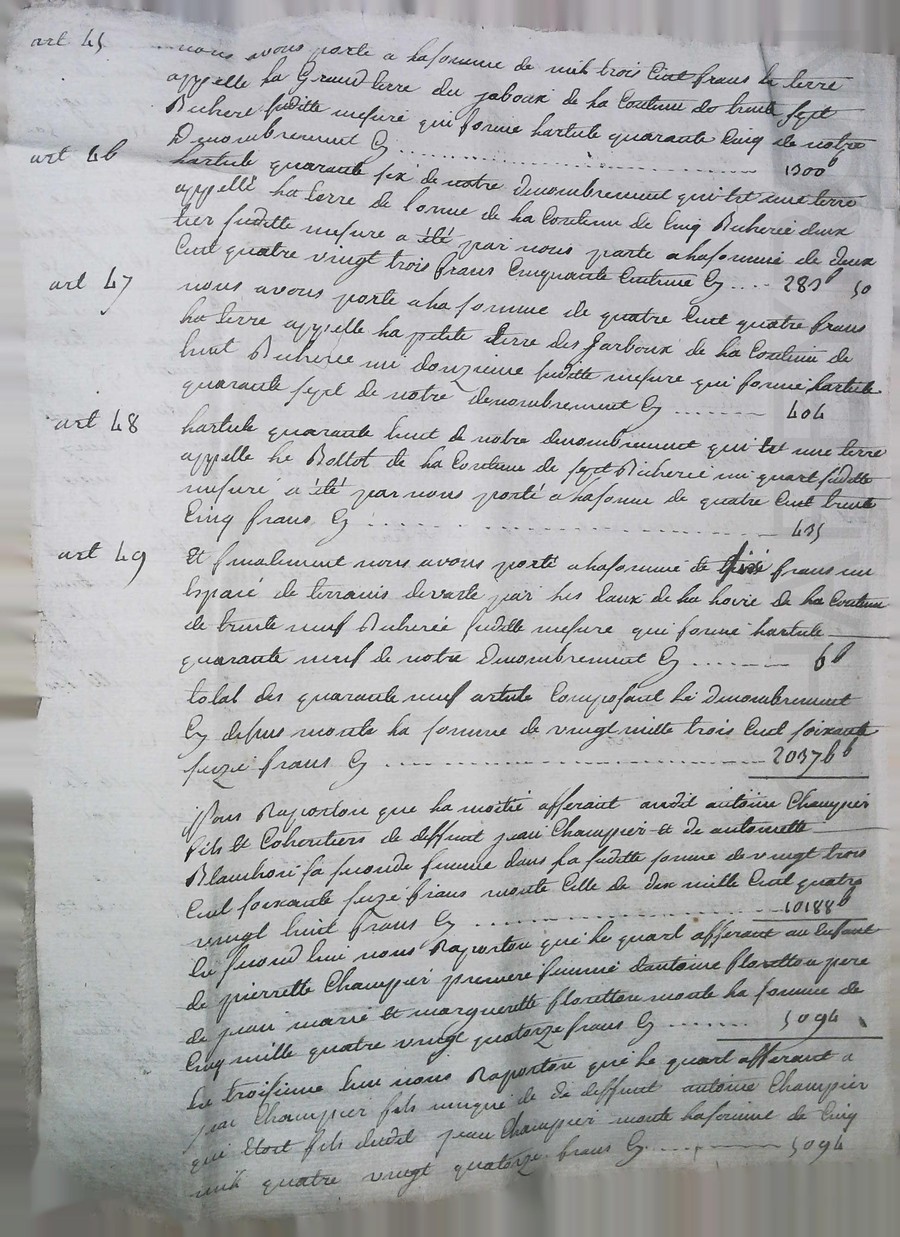 art 45 nous avons porté a la somme de mil trois Cent frans la terre
appelle la Grand terre du jaboux de la Contenu de trente sept
Bicheré suditte mesure qui forme larticle quarante Cinq de notre
Denombrement Cy .................. 1300 f
art 46 larticle quarante six de notre denombrement qui est une terre
appellé la terre de lorme de la Contenu de Cinq Bicherée deux
tier suditte mesure a été par nous porté a la somme de deux
Cent quatre vingt trois frans Cinquante Centime Cy .... 283 f 50
art 47 nous avons porté a la somme de quatre Cent quatre frans
la terre appelle la petite terre des Jarboux de la Contenu de
huit Bicherée un douzieme suditte mesure qui forme larticle
quarante sept de notre denombrement Cy ........ 404
art 48 larticle quarante huit de notre denombrement qui est une terre
appelle le Bottot de la Contenu de sept Bicherée un quart suditte
mesure a été par nous porté a la somme de quatre Cent trente
Cinq frans Cy .................. 435
art 49 Et finalement nous avons porté a la somme de six frans un
Espace de terrains devasté par les Eaux de la de la Contenu
de trente neuf Bicherée suditte mesure qui forme larticle
quarante neuf de notre Denombrement Cy ........ 6 f
total des quarante neuf article Composant le Denombrement
Cy desus monte la somme de vingt mille trois Cent soixante
seize frans Cy .................. 20376 f
Nous Raporton que la moitié afferant audit antoine Champier
fils Et Cohéritiers de deffunt jean Champier et de antoinette
sa seconde femme dans la suditte somme de vingt trois
Cent soixante seize frans monte Celle de dix mille Cent quatre
vingt huit frans Cy .................. 10188 f
En second lieu nous Raporton que le quart afferant au Enfant
de pierrette Champier premiere femme dantoine floretton pere
de jean marie Et marguerette floretton monte la somme de
Cinq mille quatre vingt quatorze frans Cy ........ 5094
En troisieme lieu nous Raporton que le quart afferant a
jean Champier fils unique de de deffunt antoine Champier
qui Etoit fils dudit jean Champier monte la somme de Cinq
mil quatre vingt quatorze frans Cy ........ 5094